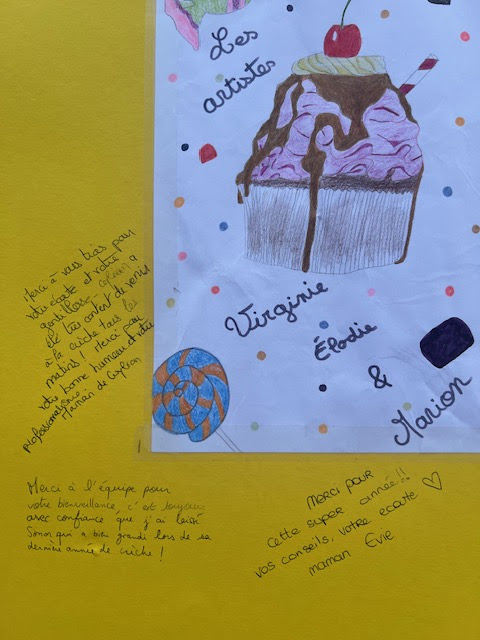 Les
artistes
Virginie
Élodie
&
Marion
Merci à vous trois pour
votre écoute et votre
gentillesse, a
été très content de venir
à la crèche tous les
matins ! Merci pour
votre bonne humeur et votre
professionnalisme.
Maman de
Merci à l'équipe pour
votre bienveillance, c'est toujours
avec confiance que j'ai laissé
qui a bien grandi lors de sa
dernière année de crèche !
MERCI POUR
cette super année!!
vos conseils, votre ecoute
maman Evie